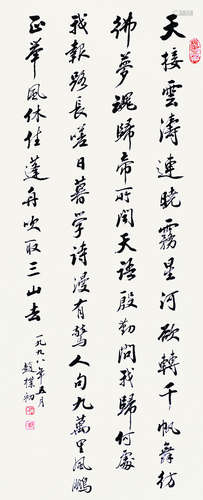 天接雲濤連曉霧星河欲轉千帆舞彷
彿夢魂歸帝所聞天語殷勤問我歸何處
我報路長嗟日暮学詩漫有驚人句九萬里風鵬
正舉風休住蓬舟吹取三山去
一九九八年五月
趙樸初